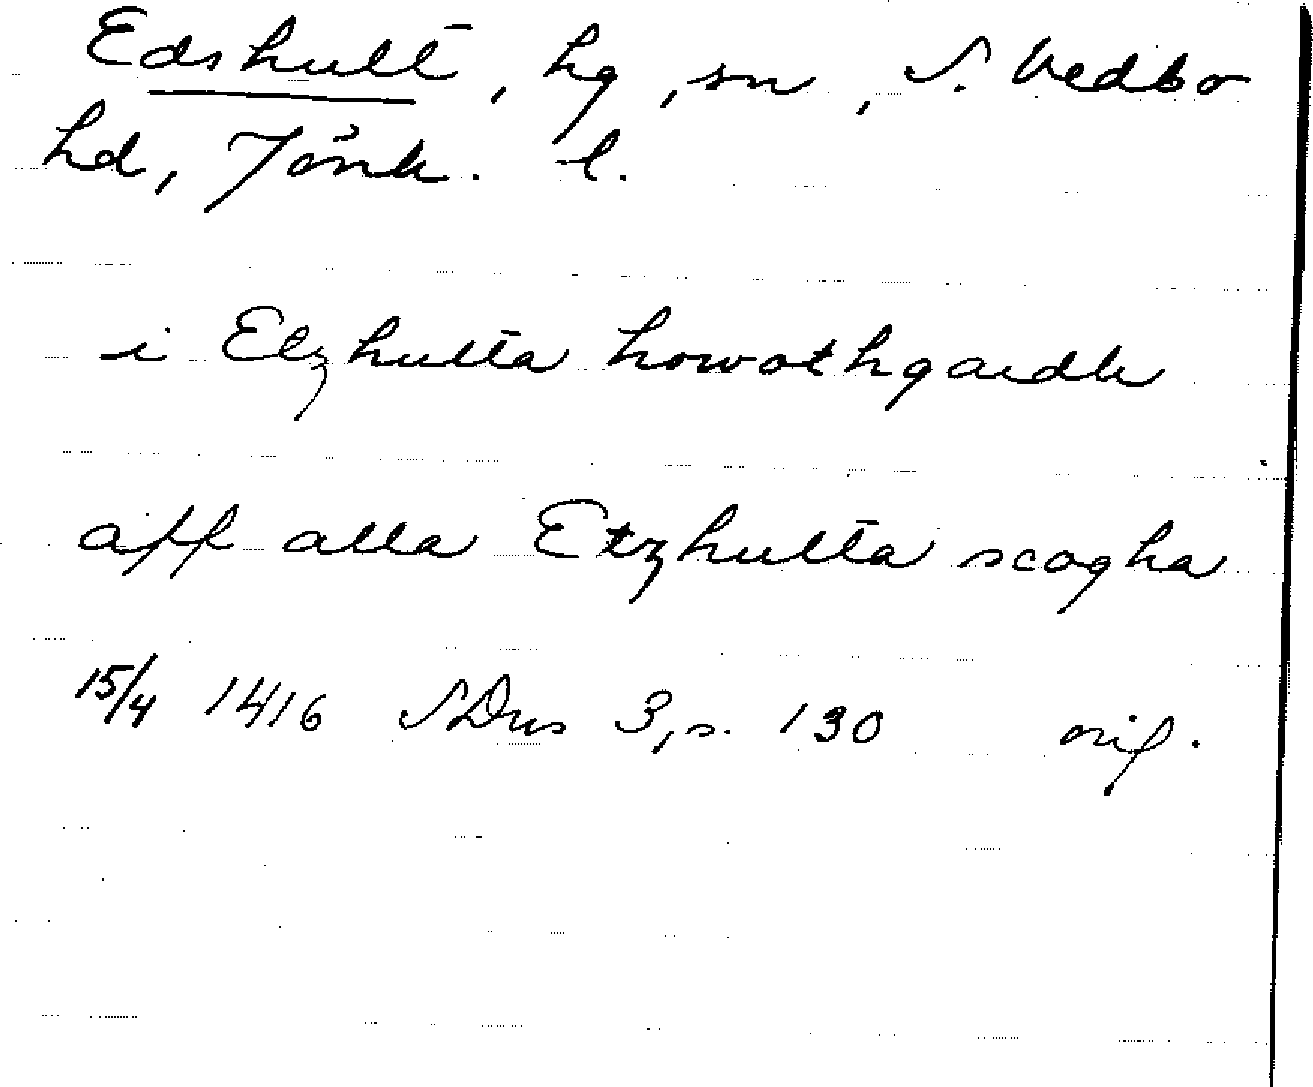 Edshult, hg, sn, S. Vedbo
hd, Jönk. l.
i Elzhulta howothgardh
aff alla Etzhulta scogha
15/4 1416 SDns 3, s. 130 orig.